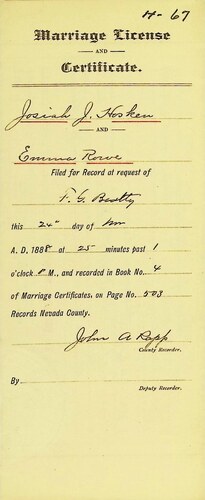 H- 67
Marriage License
AND
Certificate.
Josiah J. Hosken
AND
Emma Rowe
Filed for Record at request of
F. G. Beatty
this 24" day of
A. D. 1888 at 25 minutes past 1
o'clock P M., and recorded in Book No. 4
of Marriage Certificates, on Page No. 503
Records Nevada County.
John A Rapp
County Recorder.
By
Deputy Recorder.